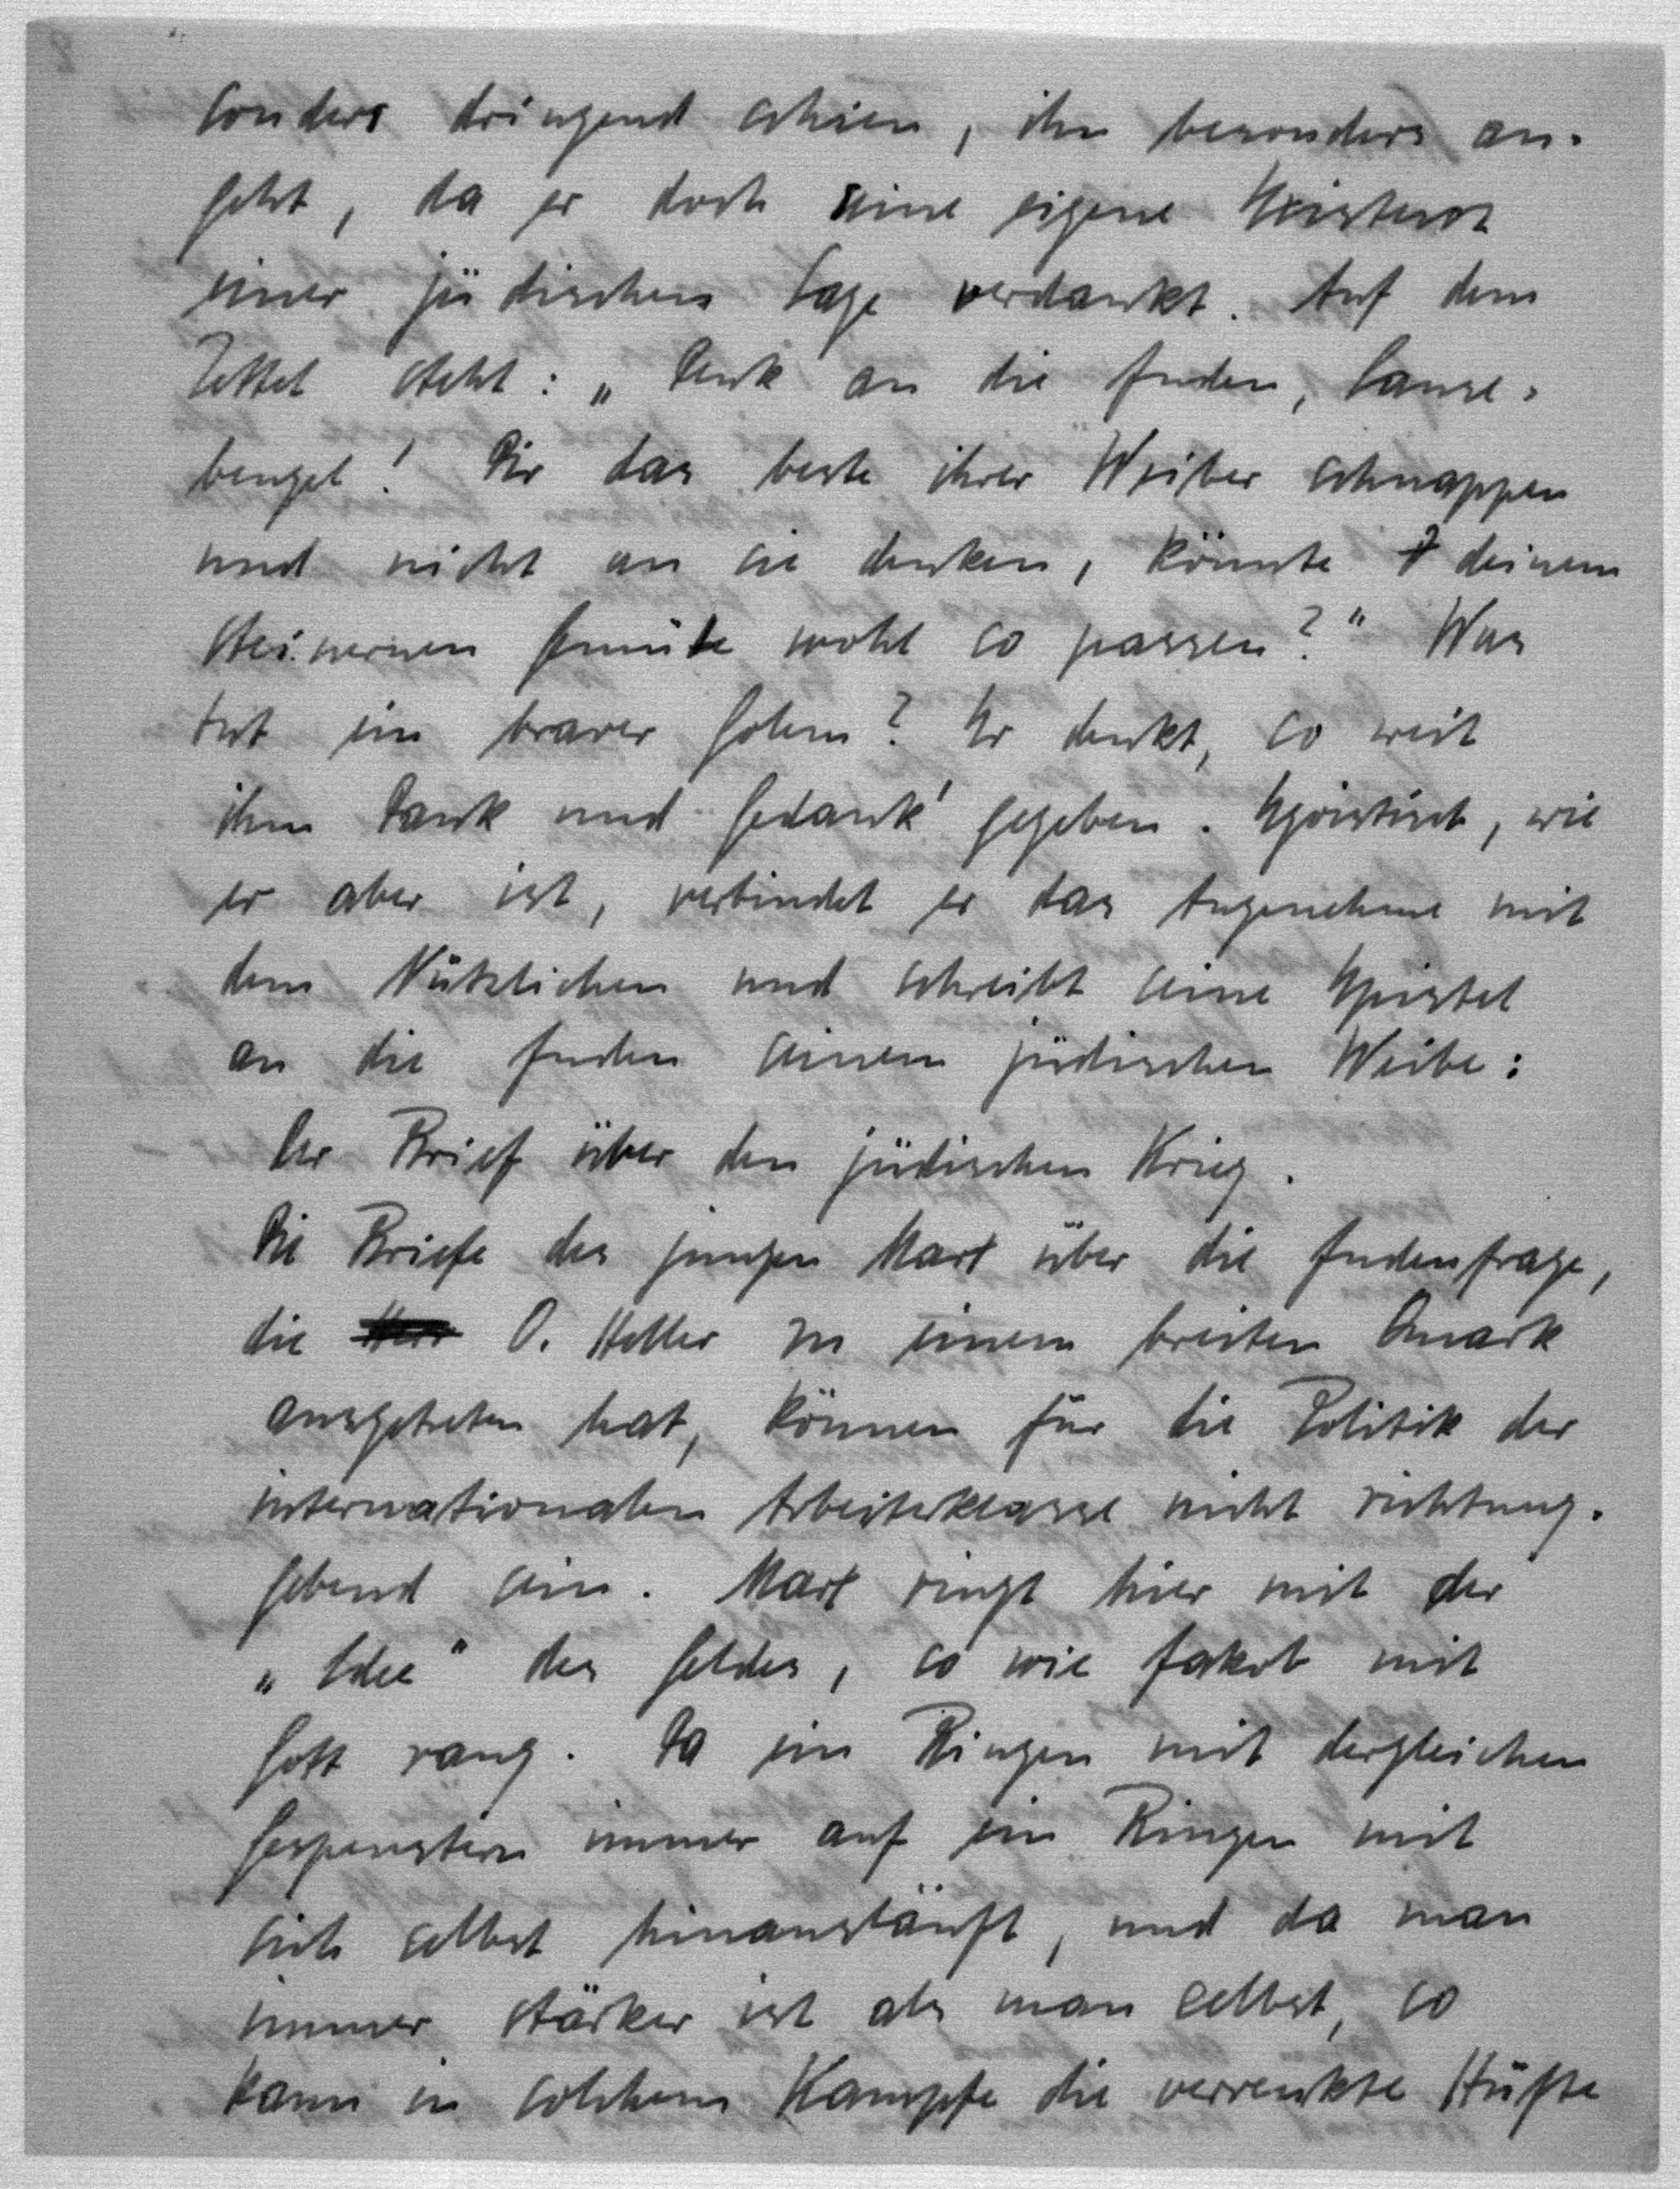 sonders dringend schien, ihn besonders an-
geht, da er doch seine eigene Existenz
einer jüdischen Sage verdankt. Auf dem
Zettel steht: „Denk an die Juden, Lause-
bengel! Dir das beste ihrer Weiber schnappen
und nicht an sie denken, könnte deinem
steinernen Gemüte wohl so passen?" Was
tut ein braver Golem? Er denkt, so weit
ihm Dank und Gedank' gegeben. Egoistisch, wie
er aber ist, verbindet er das Angenehme mit
dem Nützlichen und schreibt seine Epistel
an die Juden seinem jüdischen Weibe:
Der Brief über den jüdischen Krieg.
Die Briefe des jungen Marx über die Judenfrage,
die O. Heller zu einem breiten Quark
ausgetreten hat, können für die Politik der
internationalen Arbeiterklasse nicht richtung-
gebend sein. Marx ringt hier mit der
„Idee" des Geldes, so wie Jakob mit
Gott rang. Da ein Ringen mit dergleichen
Gespenstern immer auf ein Ringen mit
sich selbst hinausläuft, und da man
immer stärker ist als man selbst, so
kann in solchem Kampfe die verrenkte Hüfte